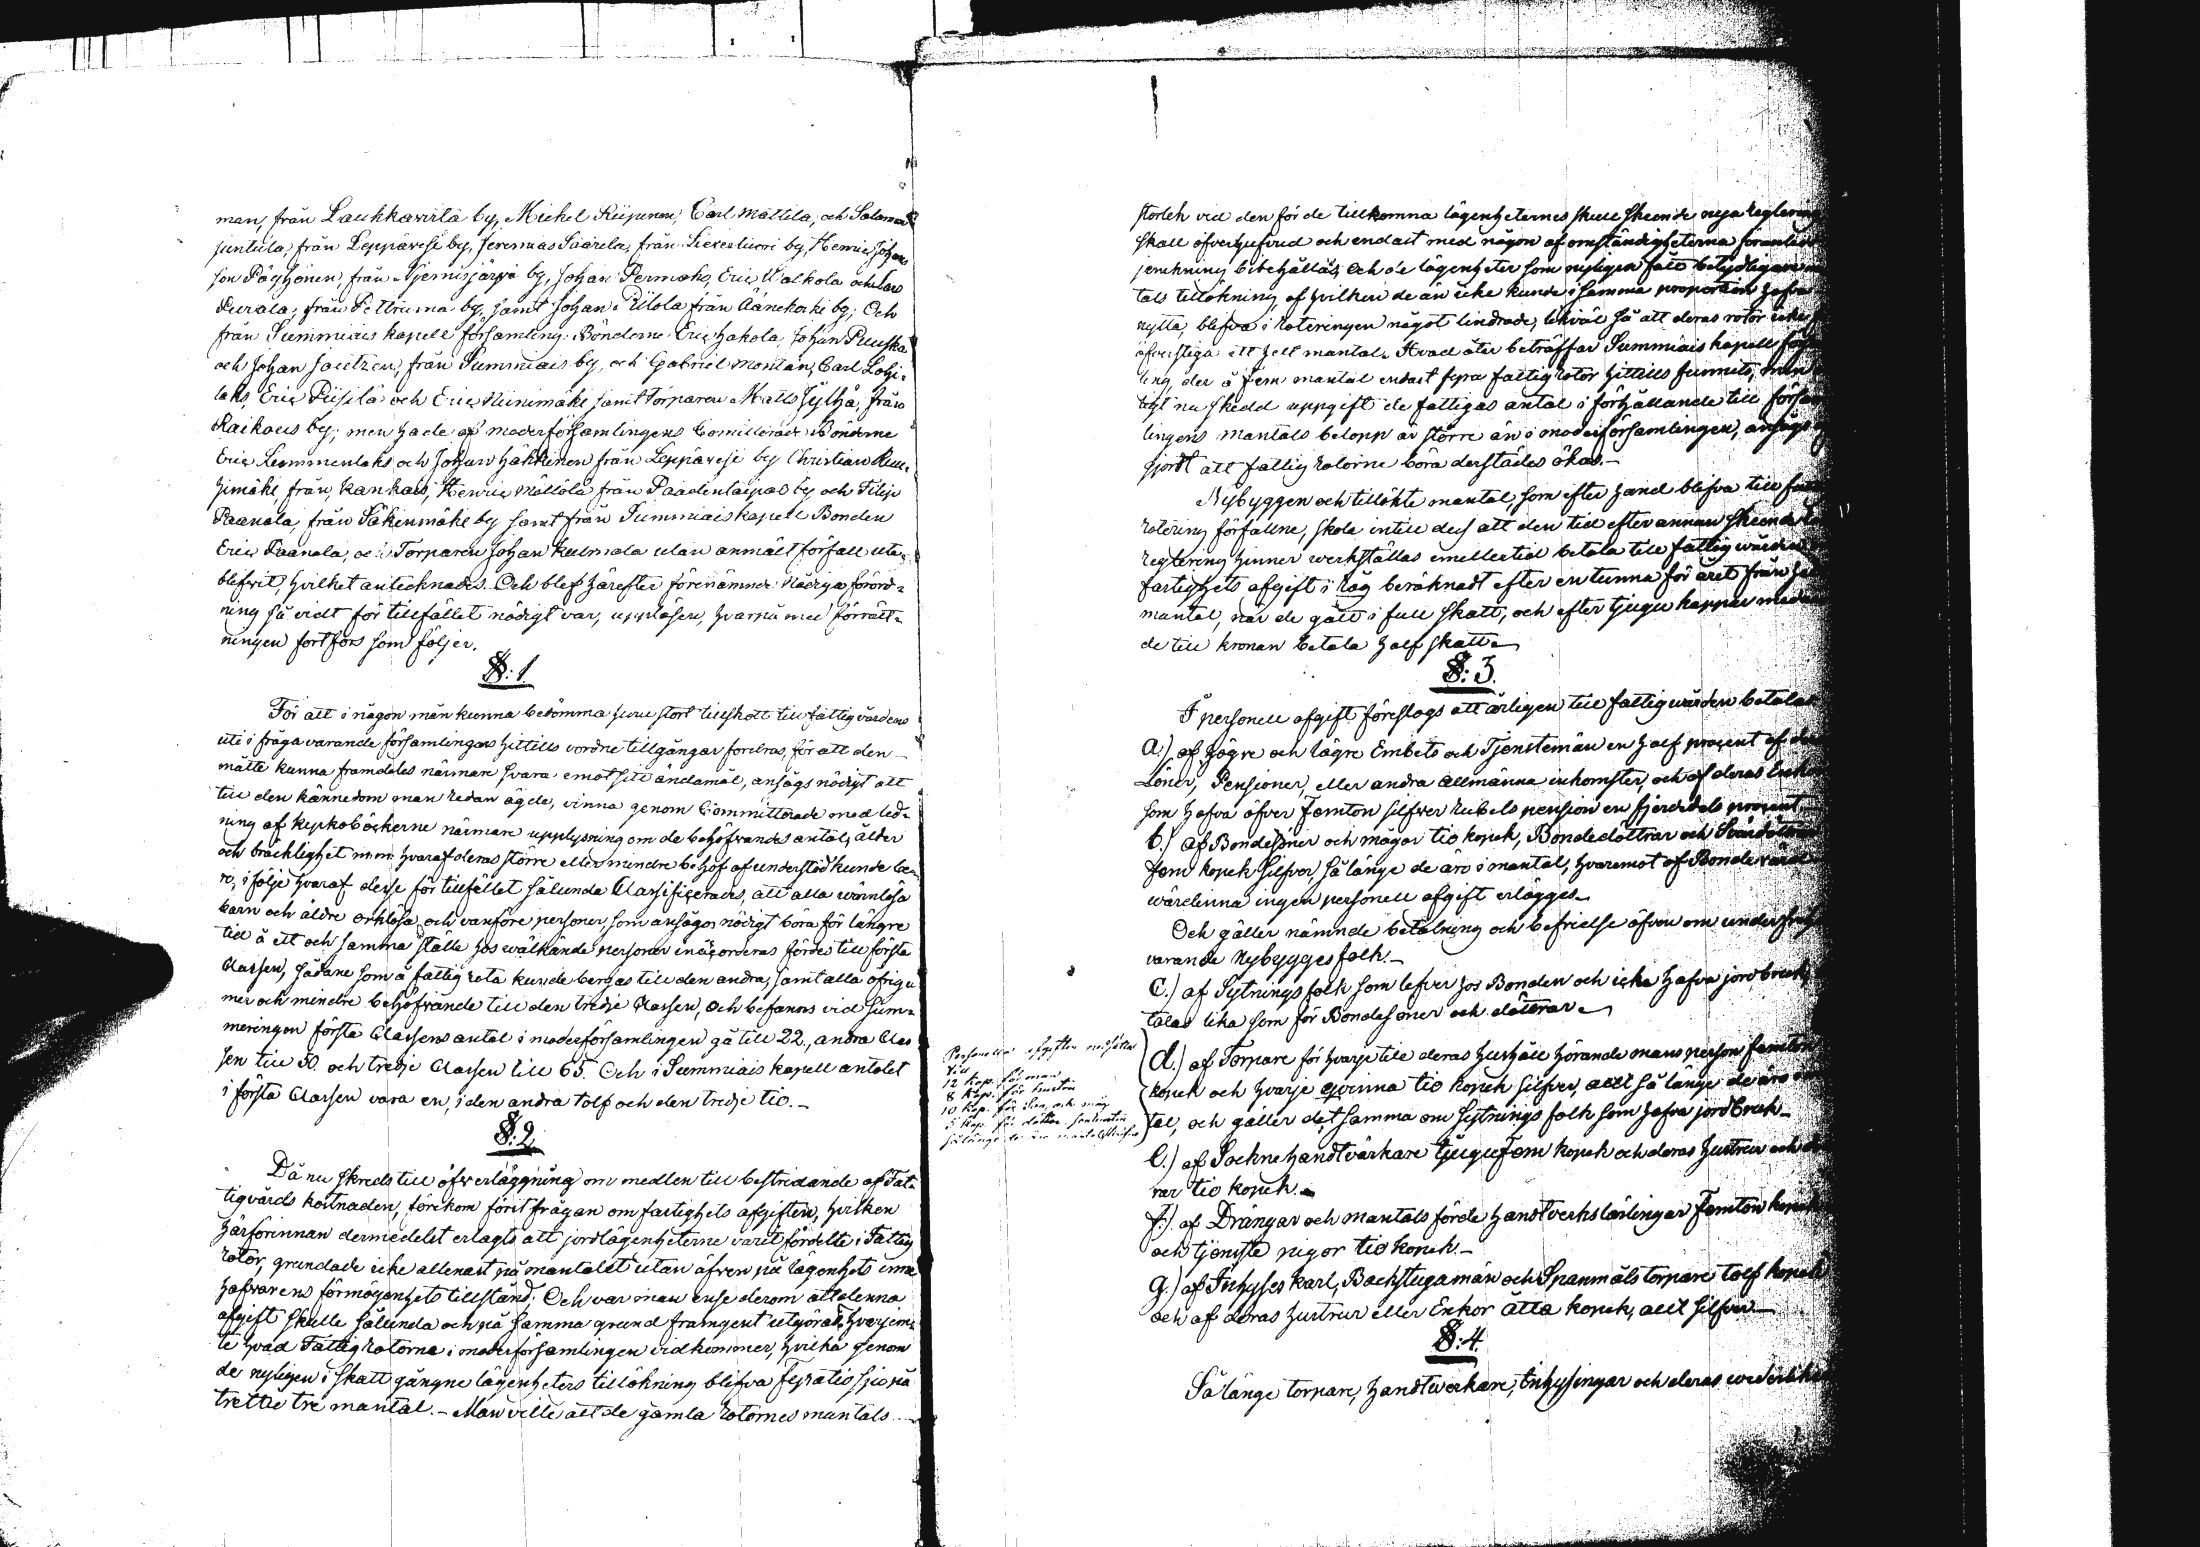 man, från Laukkavirta by, Michel Riipinen, Carl Mattila, och Salomon
Juntula, från Leppävesi by, Jeremias Säärelä, från Lieveстuore by, Henric Johans
son Pöyhönen, från Njemisjärvi by, Johan Permaks, Eric Valkola och Lars
Purala, från Pettruma by, samt Johan Pitola från Äänekoski by; Och
från Summiais kapell församling Bönderne Eric Hakola, Johan Puuska
och Johan Jouttzen, från Summiais by och Gabriel Montan, Carl Lohi-
laks, Eric Piisilä och Eric Niinimäki samt Torparen Matts Jylhä, från
Raikaus by; men hade af moderförsamlingens Committerade Bönderne
Eric Lemmenlaks och Johan Hakkinen från Leppävesi by Christian Ruu-
himäki, från Kankais, Henric Mällölä från Paadentaipal by och Filip
Paanala, från Säkinmäki by samt från Summiais kapell Bonden
Eric Paanala, och Torparen Johan Kulmala utan anmält förfall ute-
blifvit, hvilket antecknades. Och blef härefter förenämnde Nådiga förord-
ning så vidt för tillfället nödigt var, uppläsen, hvarpå med förrätt-
ningen fortfors som följer.
§: 1.
För att i någon mån kunna bedömma huru stort tillskott till fattigvårdens
uti i fråga varande församlingar hittills vordne tillgångar fordras, för att den
måtte kunna framdeles närmare svara emot sitt ändamål, ansågs nödigt att
till den kännedom man redan ägde, vinna genom Committerade med led-
ning af kyrkoböckerne närmare upplysning om de behöfvandes antal, ålder
och bräcklighet m.m. hvaraf deras större eller mindre behof af understöd kunde be-
ro; i följe hvaraf desse för tillfället sålunda Classificerades, att alla wärnlösa
barn och äldre orklösa och vanföre personer, som ansågos nödigt böra för längre
tid å ett och samma ställe hos wälkände personer inackorderas fördes till första
Classen, sådane som å fattig rota kunde bergas till den andra, samt alla öfriga
mer och mindre behöfvande till den tredje Classen, Och befanns vid sum-
meringen första Classens antal i moderförsamlingen gå till 22, andra Clas
sen till 50. och tredje Classen till 65. Och i Summiais kapell antalet
i första Classen vara en, i den andra tolf och den tredje tio.–
§: 2.
Då nu skreds till öfwerläggning om medlen till bestridande af Fat-
tigvårds kostnaden, förekom först frågan om fastighets afgiften, hvilken
härförinnan dermedelst erlagts att jordlägenheterne varit fördelte i Fattig
rotor, grundade icke allenast på mantalet utan äfven på lägenhets inne
hafvarens förmögenhets tillstånd. Och var man ense derom att denna
afgift skulle sålunda och på samma grund framgent utgöras, hvarjem-
te hvad Fattig rotorna i moderförsamlingen vidkommer, hvilka genom
de nyligen i skatt gångne lägenheters tillökning blifva Fyratio sju på
trettio tre mantal.– Man ville att de gamla rotornes mantals
storlek vid den för de tillkomna lägenheternes skull skeende nya reglering
skall öfverhufvud och endast med någon af omständigheterna föranledd
jemkning bibehållas, Och de lägenheter som nyligen fått betydligare man
tals tillökning af hvilken de än icke kunde i samma proportion hafva
nytta, blifva i roteringen något lindrade, likväl så att deras rotor icke
öfverstiga ett helt mantal. Hvad åter beträffar Summiais kapell försam
ling, der å fem mantal endast fyra fattig rotor hittills funnits, men
enligt nu skedd uppgift de fattigas antal i förhållande till försam
lingens mantals belopp är större än i moderförsamlingen, ansågs
gjordt att fattig rotorne böra derstädes ökas.–
Nybyggen och tillökte mantal, som efter hand blifva till fattig
rotering förfallne, skola intill dess att den tid efter annan skeende
reglering hinner werkställas emellertid betala till fattigwården
fastighets afgift i råg beräknadt efter en tunna för året från helt
mantal, när de gått i full skatt, och efter tjugu kappar medan
de till kronan betala half skatt.
§: 3.
I personell afgift föreslogs att årligen till fattigwården betalas
a.) af högre och lägre Embets och Tjenstemän en half procent af deras
Löner, Pensioner, eller andra allmänna inkomster, och af deras Enkor
som hafva öfver Femton silfver rubels pension en fjerdedels procent
b.) af Bondesöner och mågar tio kopek, Bondedöttrar och Svärdöttrar
fem kopek Silfver, så länge de äro i mantal, hvaremot af Bonde värd
wärdinna ingen personell afgift erlägges.
Och gäller nämnde betalning och befrielse äfven om under frihet
varande Nybygges folk.–
C.) af Sytnings folk som lefver hos Bonden och icke hafva jordbruk
talas lika som för Bondesöner och döttrar.
Personella afgiften nedsättes
till
12 kop. för man
8 kop. för hustru
10 kop. för Son och måg
5 kop. för dotter
så länge de äro mantalskrifne
d.) af Torpare för hvarje till deras hushåll hörande mans person femton
kopek och hvarje qvinna tio kopek silfver, allt så länge de äro
tal, och gäller det samma om Sytnings folk som hafva jordbruk.
e.) af Sockne handtvärkare tjugufem kopek och deras hustrur och
rar tio kopek.
f.) af Drängar och mantals förde handtverks lärlingar Femton kopek
och tjenste pigor tio kopek.–
g.) af Inhyses karl, Backstuga män och Spanmåls torpare tolf kopek
och af deras hustrur eller Enkor åtta kopek, allt silfver.–
§: 4.
Så länge torpare, handtwerkare, inhysingar och deras wederlikar